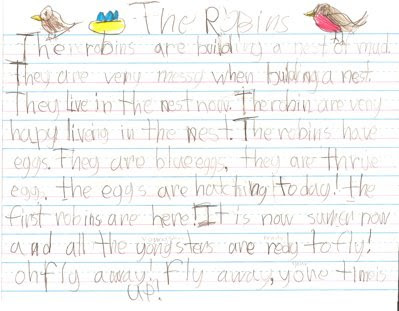 The Robins
The robins are building a nest of mud.
They are very messy when building a nest.
They live in the nest now. The robin are very
hapy living in the nest. The robins have
eggs. They are blue eggs, they are thrye
egg. the eggs are hatching today! the
first robins are here! It is now sumer now
and all the yongsters are redy to fly!
oh fly away! Fly away, your time is
up!